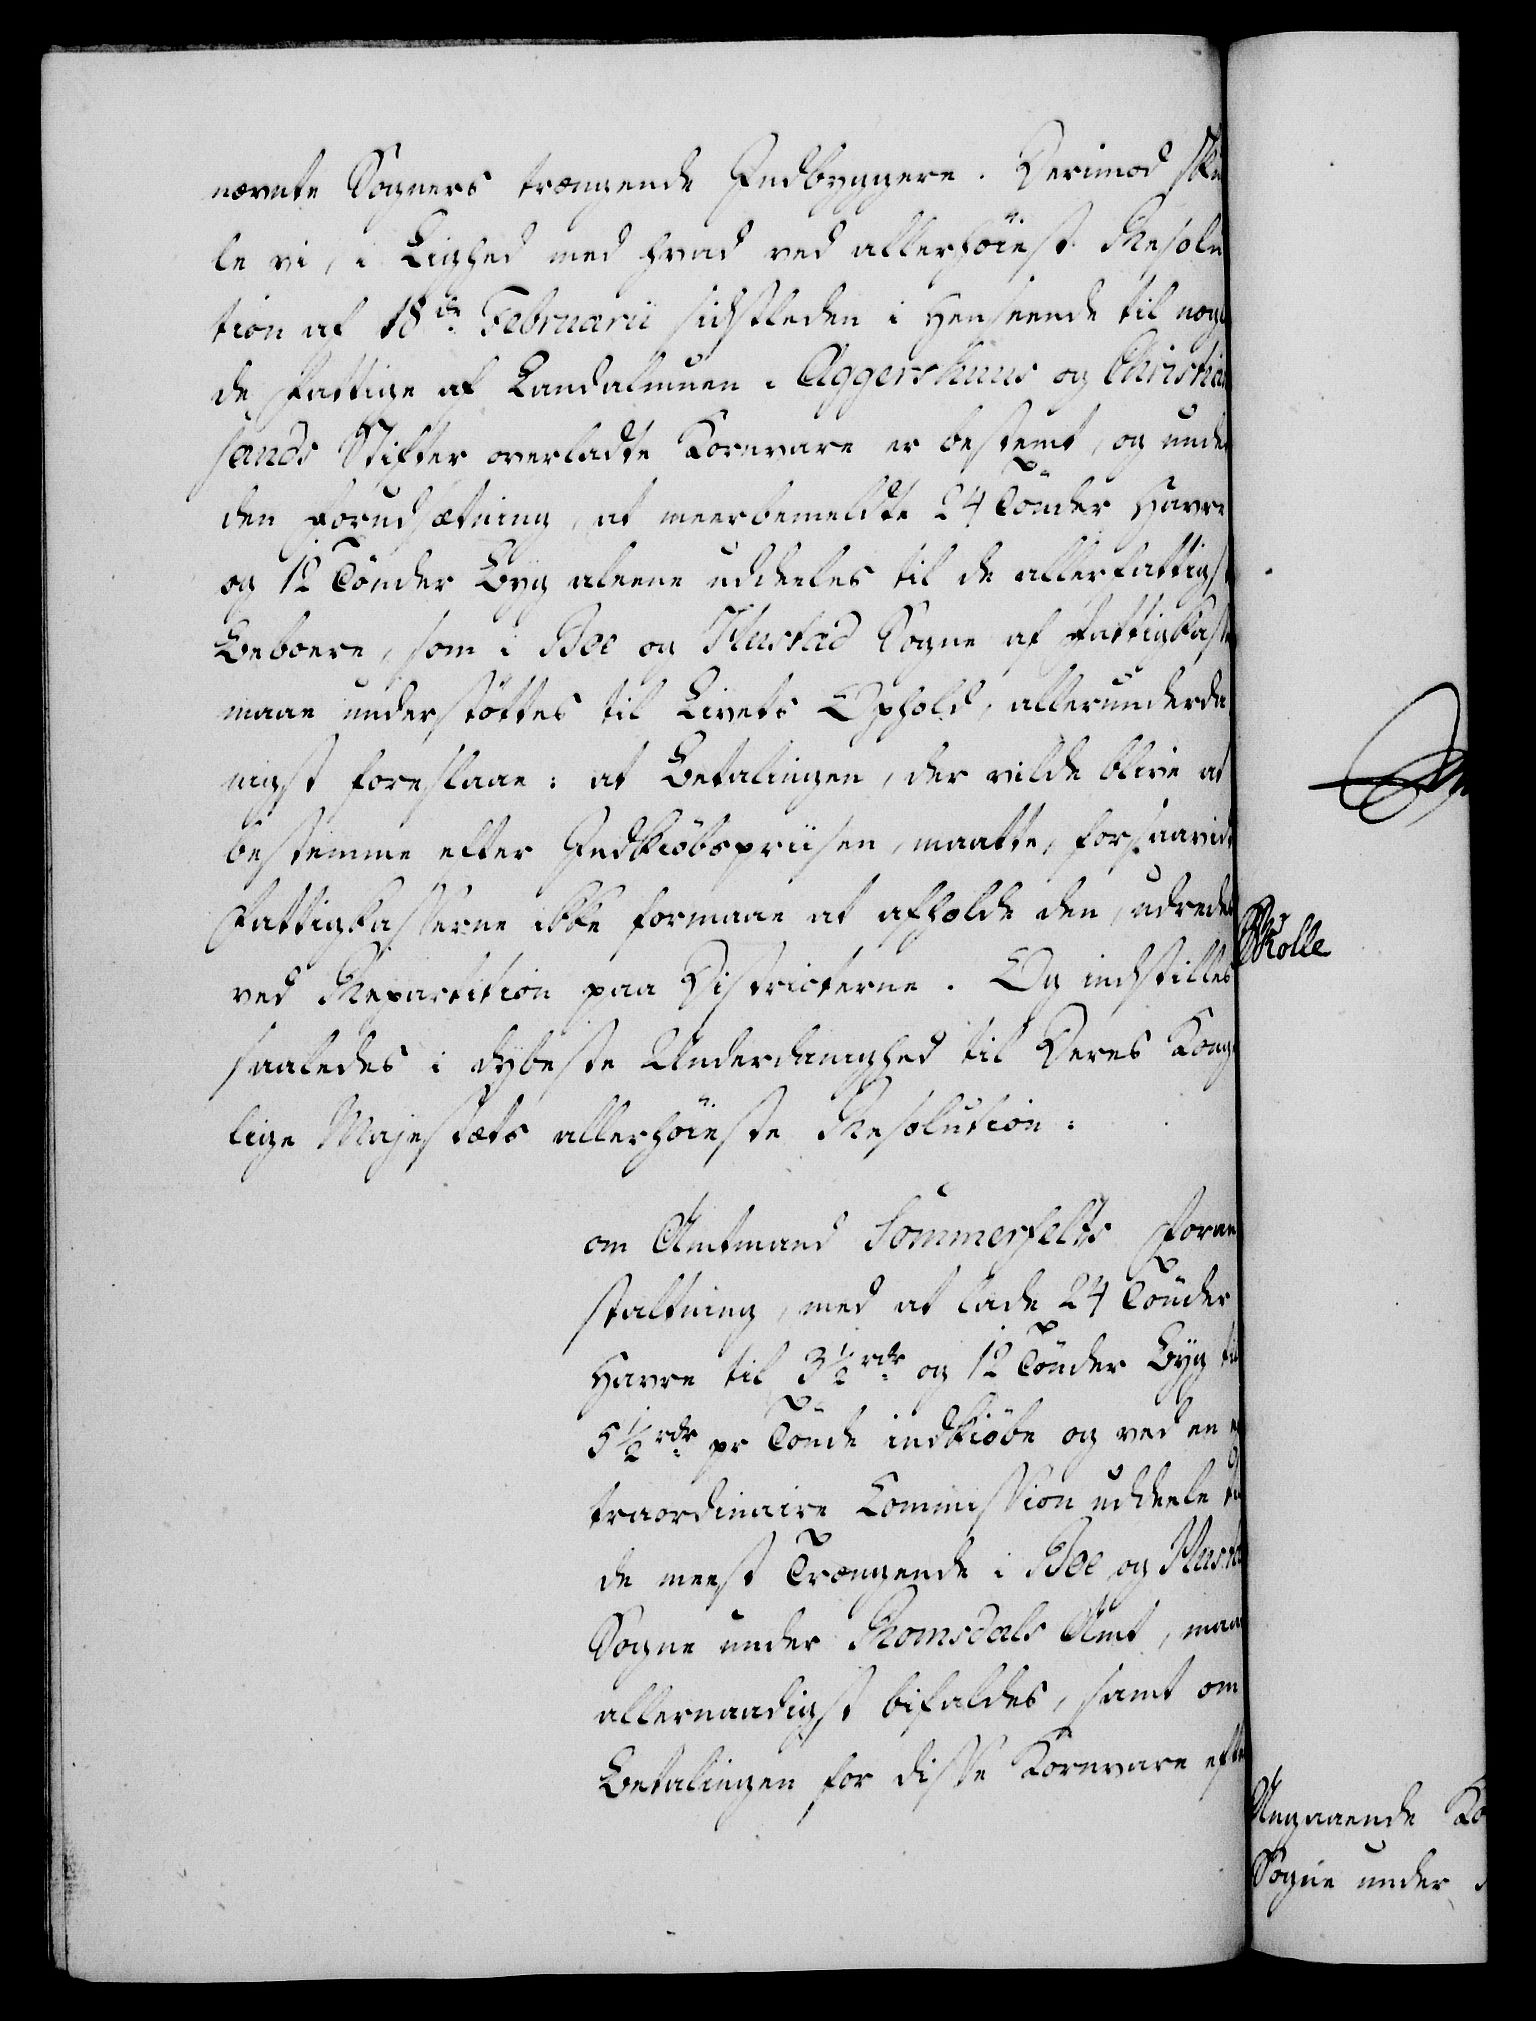 nævnte Sogners trængende Indbyggere. Derimod sku
le vi, i Lighed med hvad ved allerhöiest Resolu
tion af 18de Februarii sidstleden i Henseende til nog
de Fattige af Landalmuen i Aggershuus og Christian
sands Stifter overladte Kornvare er bestemt, og under
den Forudsætning, at meerbemeldte 24 Tönder Havre
og 12 Tönder Byg aleene uddeeles til de allerfattigst
Beboere, som i Boe og Hustad Sogne af Fattigkass
maae understöttes til Livets Ophold, allerunderda
nigst foreslaae: at Betalingen, der vilde blive at
bestemme efter Indkiöbspriisen, maatte, forsaavidt
Fattigkasserne ikke formaae at afholde den, udredes
ved Repartition paa Districterne. Og indstilles
saaledes i dybeste Underdanighed til Deres Konge
lige Majestæts allerhöieste Resolution:
om Amtmand Sommerfelts Foran
staltning, med at lade 24 Tönder
Havre til 3½ rdr og 12 Tönder Byg til
5½ rdr pr Tönde indkiöbe og ved en ex
traordinaire Commission uddeele til
de meest Trængende i Boe og Husta
Sogne under Romsdals Amt, maae
allernaadigst bifaldes, samt om
Betalingen for disse Kornvare efte
Molle
Angaaende Ko
Sogne under